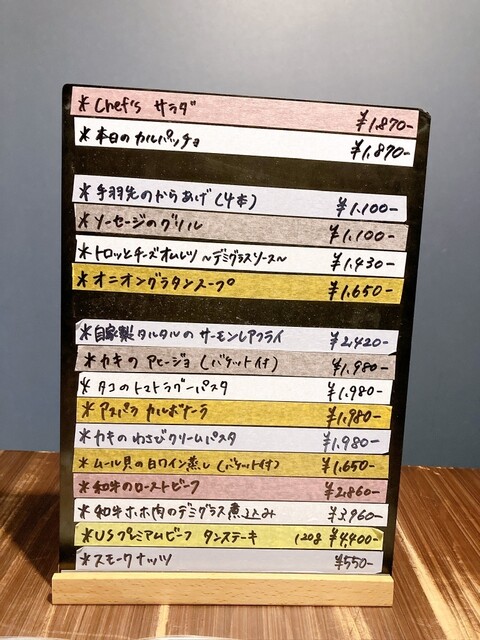 * Chef's サラダ ¥1,870-
* 本日のカルパッチョ ¥1,870-
* 手羽先のからあげ (4本) ¥1,100-
* ソーセージのグリル ¥1,100-
* トロッとチーズオムレツ ~デミグラスソース~ ¥1,430-
* オニオングラタンスープ ¥1,650-
* 自家製タルタルの サーモンレアフライ ¥2,420-
* カキの アヒージョ (バゲット付) ¥1,980-
* タコのトマトラグーパスタ ¥1,980-
* アスパラ カルボナーラ ¥1,980-
* カキのわさびクリームパスタ ¥1,980-
* ムール貝の白ワイン蒸し (バゲット付) ¥1,650-
* 和牛のローストビーフ ¥2,860-
* 和牛ホホ肉のデミグラス煮込み ¥3,960-
* USプレミアムビーフ タンステーキ 120g ¥4,400-
* スモークナッツ ¥550-